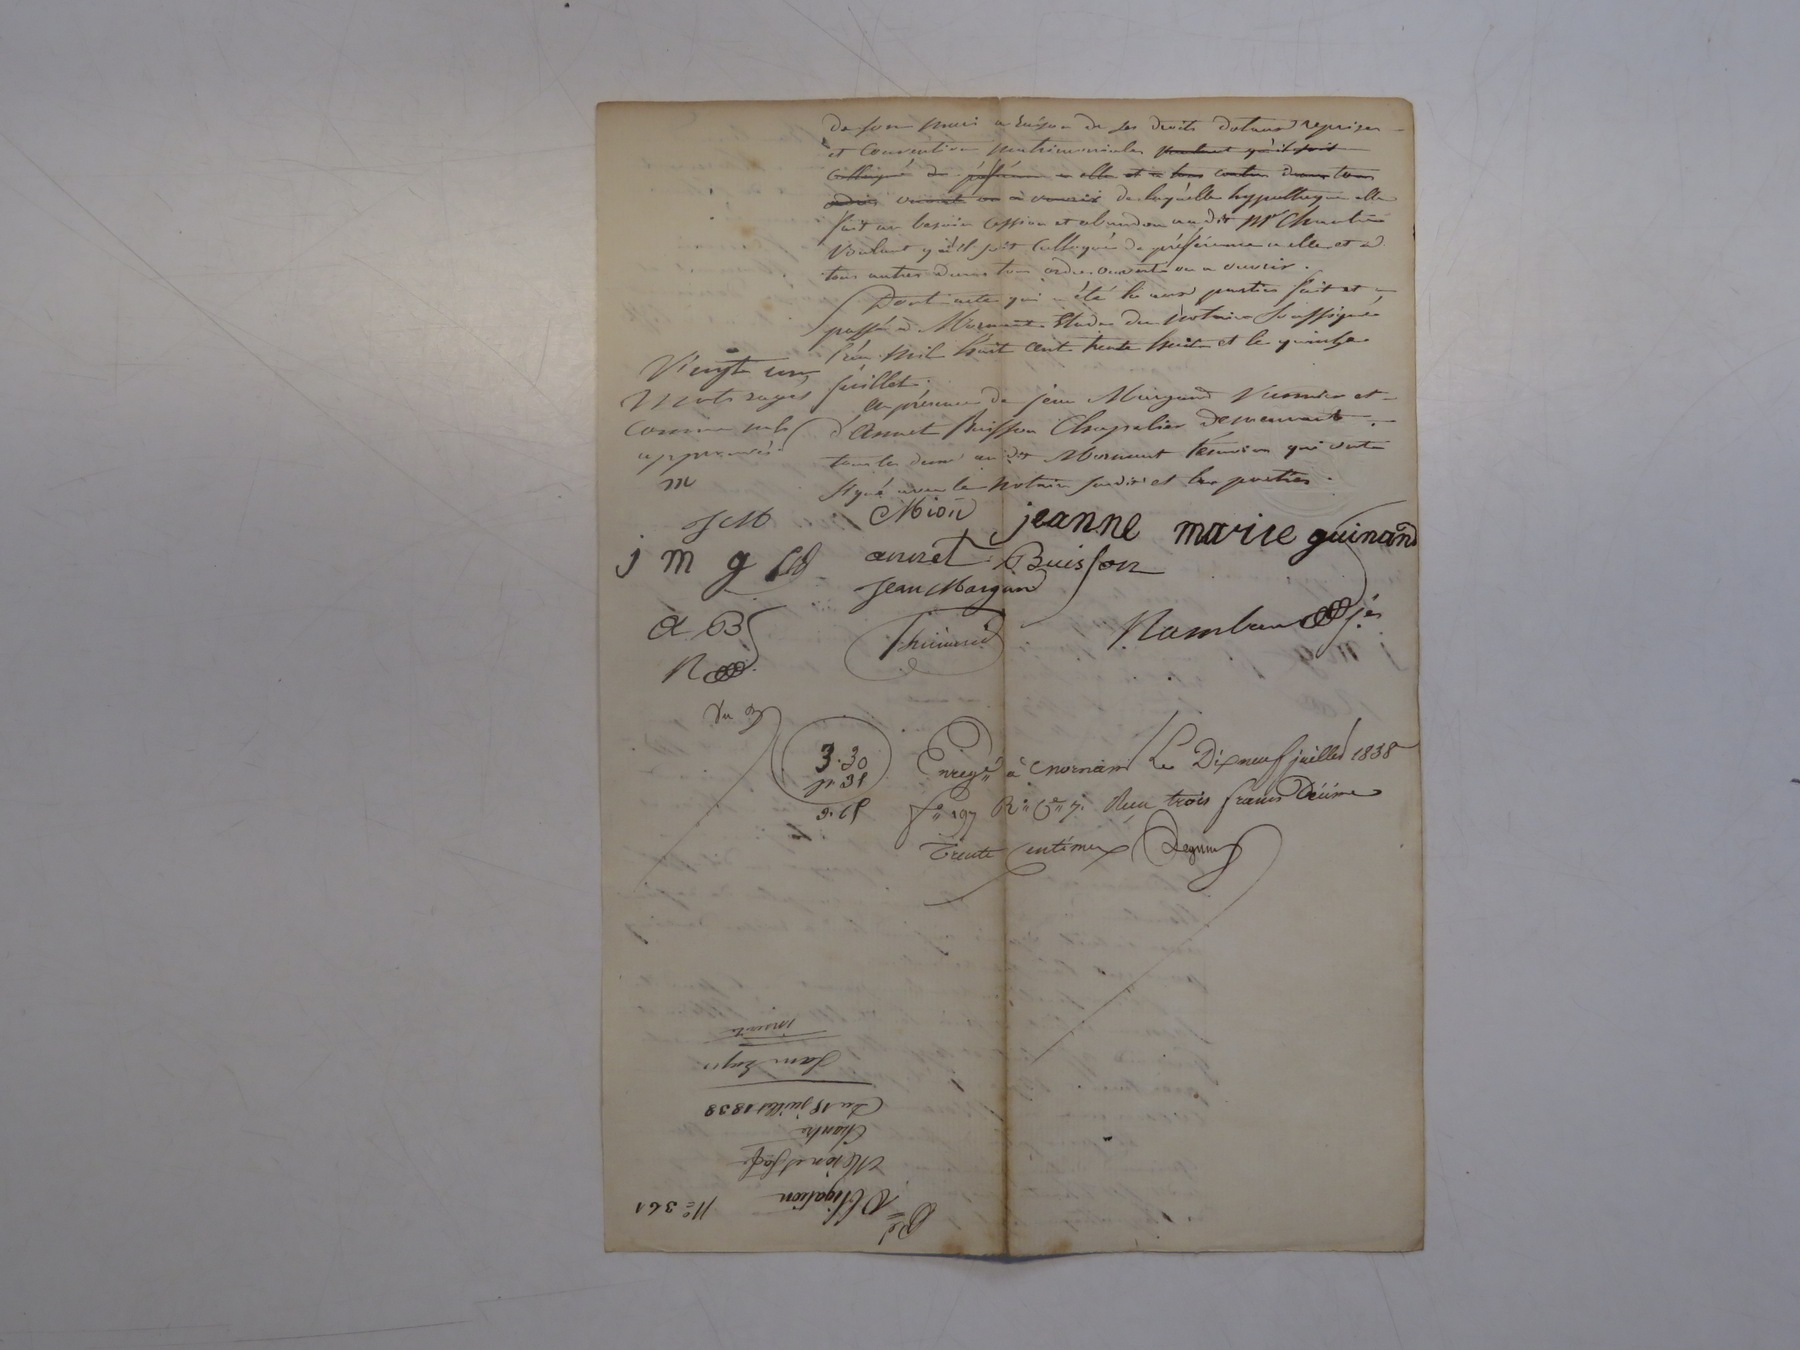 de son mari a raison de ses droits dotaux reprises
et conventions matrimoniales voulant qu'il soit
colloqué de préférence a elle et a tous autres dans tous
ordres ouverts ou a ouvrir de laquelle hypothèque elle
fait au besoin cession et abandon au dit Mr Chantre
voulant qu'il soit colloqué de préférence a elle et a
tous autres dans tous ordres ouverts ou a ouvrir.
Dont acte qui a été lu aux parties fait et
passé a Mornant Etude du notaire soussigné
l'an mil huit cent trente huit et le quinze
juillet.
en présence de jean Margand et
d'Annet Buisson Chapelier demeurants
tous les deux au dit Mornant témoins qui ont
signé avec le notaire susdit et les parties.
Vingt un
mots rayés
comme nuls
approuvés
m
JM
j m g
A B
R
Mion jeanne marie guinand
annet Buisson
Jean Margand
3.30
Enregé à Mornant Le Dix neuf juillet 1838
fo 197 Ro Ce 7. Reçu trois francs Décime
Trente centimes
No 361
Obligation
Mion et sa fe
Chantre
Du 15 juillet 1838